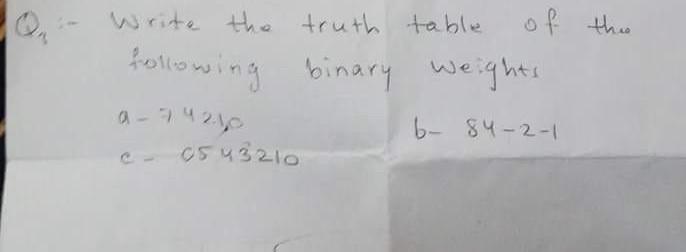 Q3 :- Write the truth table of the
following binary weights
a - 74210
b - 84-2-1
c - 0543210